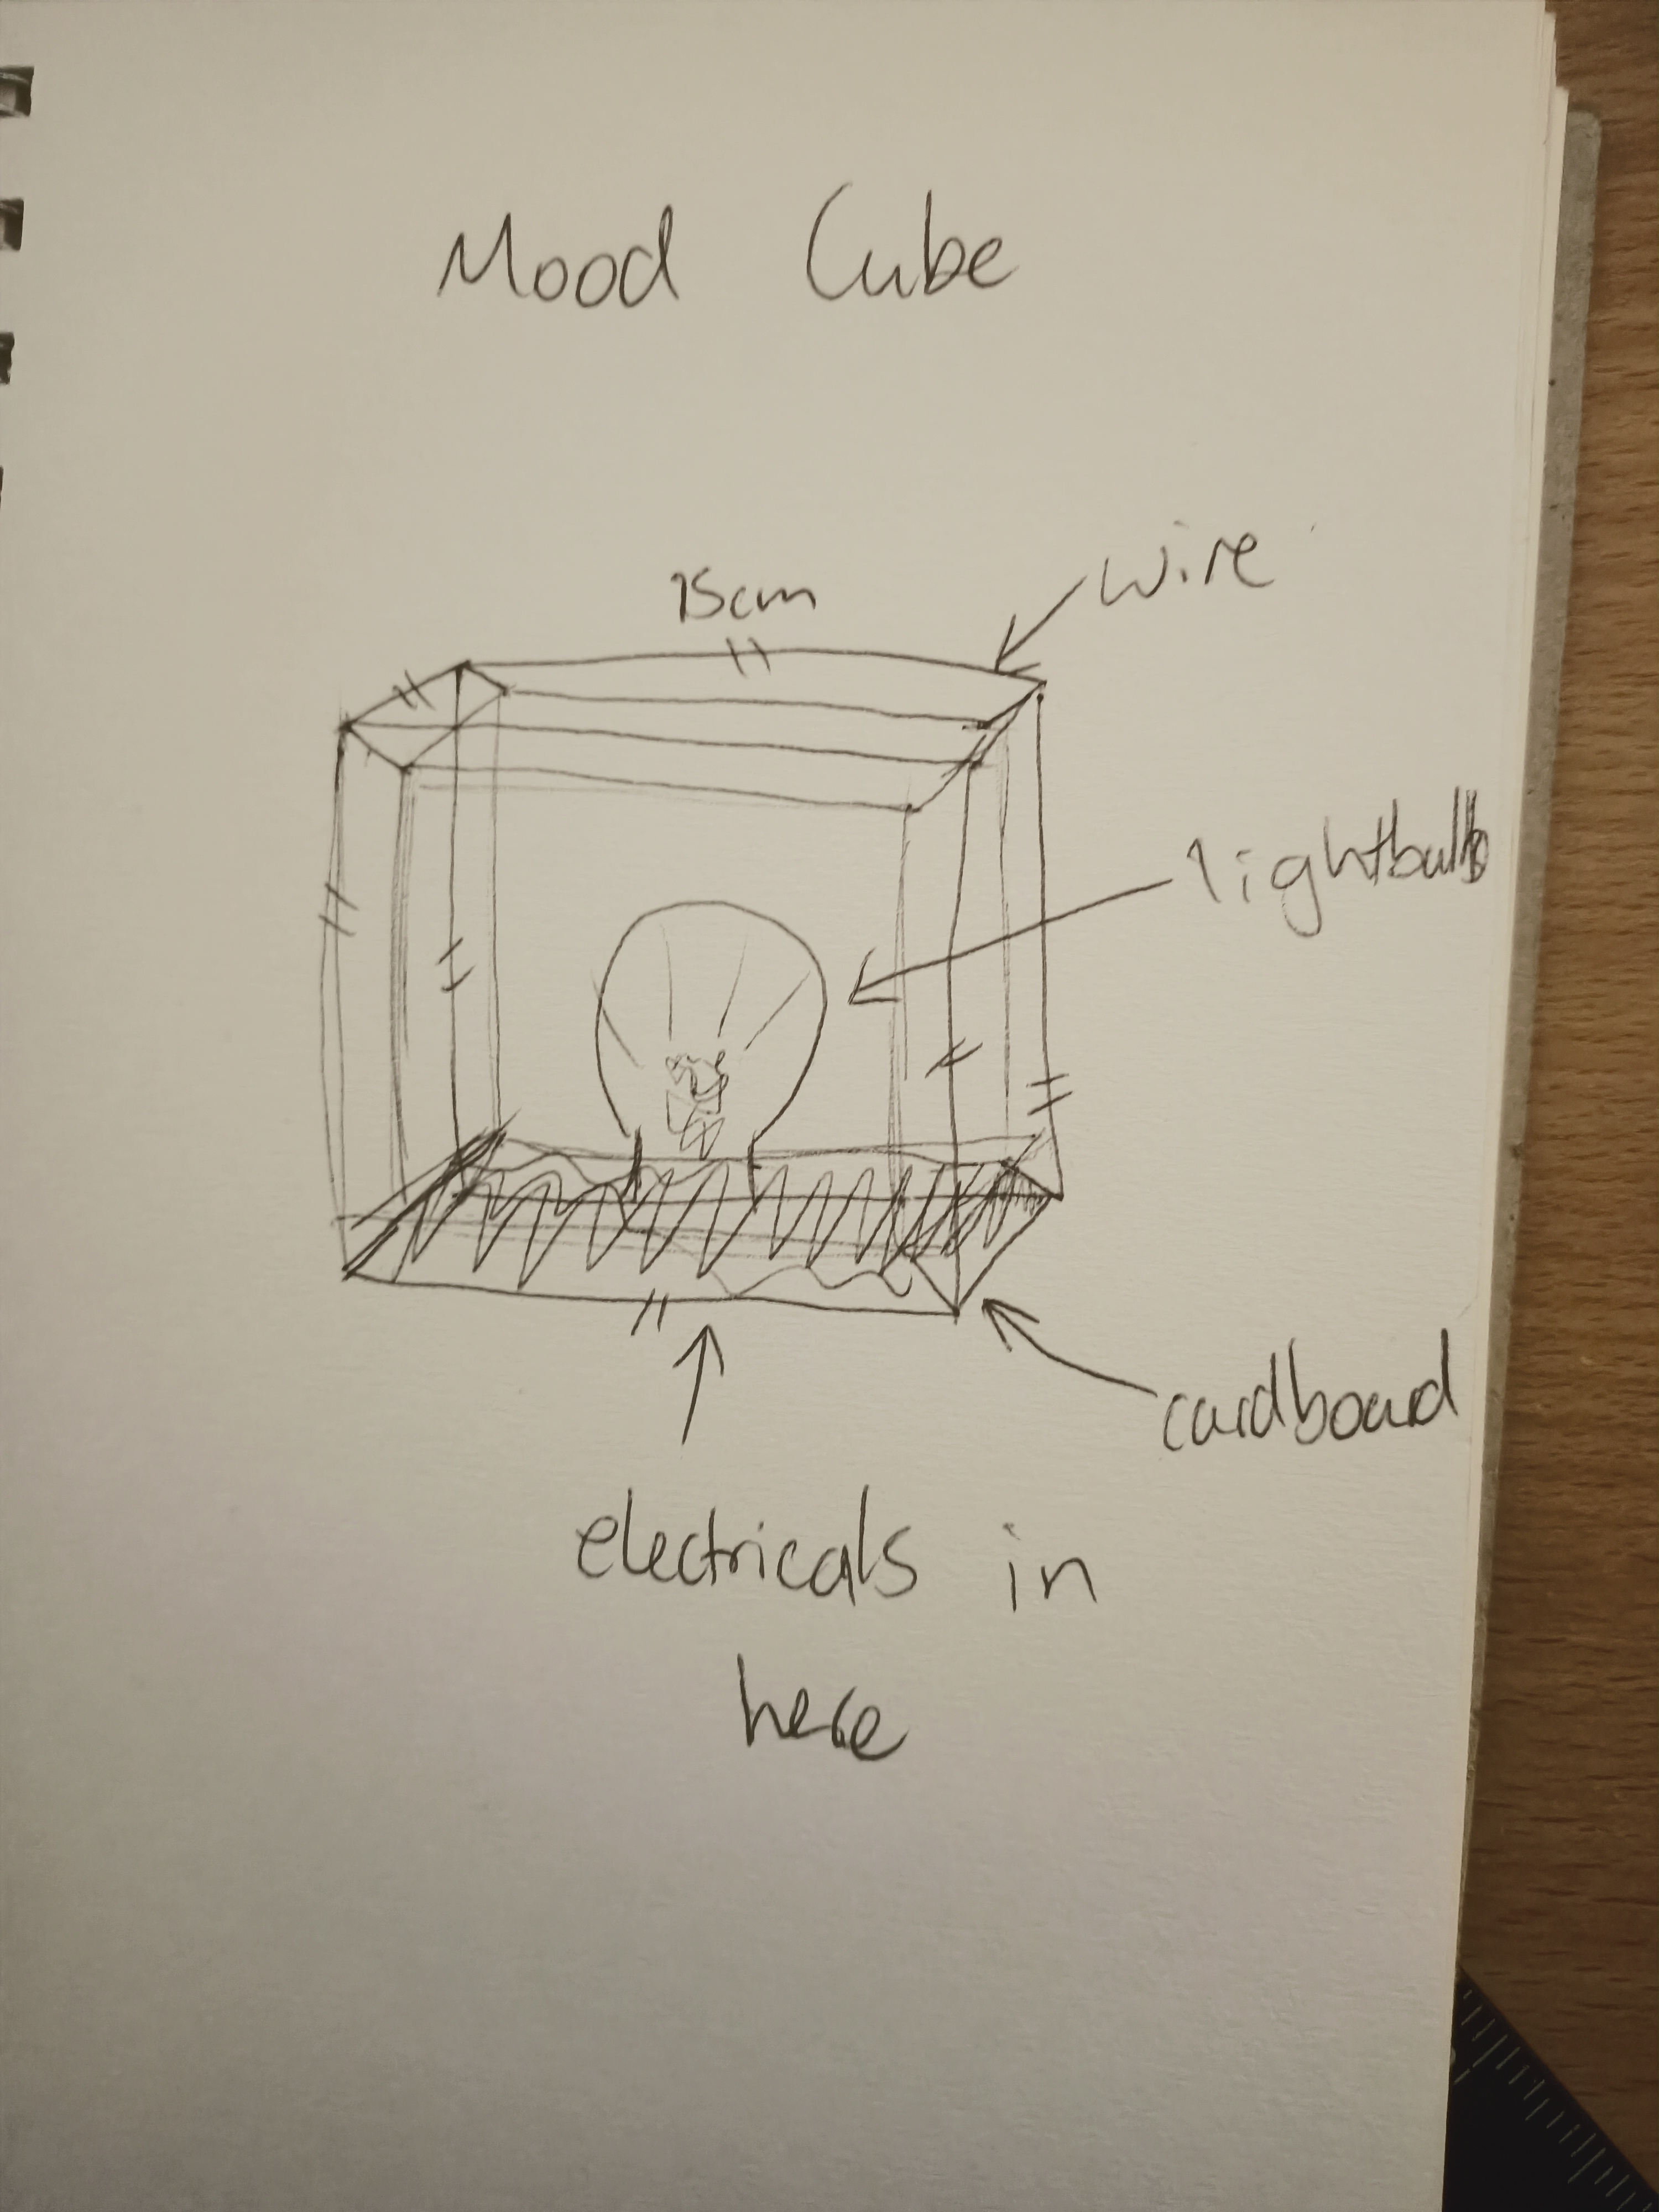 Mood Cube
15cm
wire
lightbulb
cardboard
electricals in
here